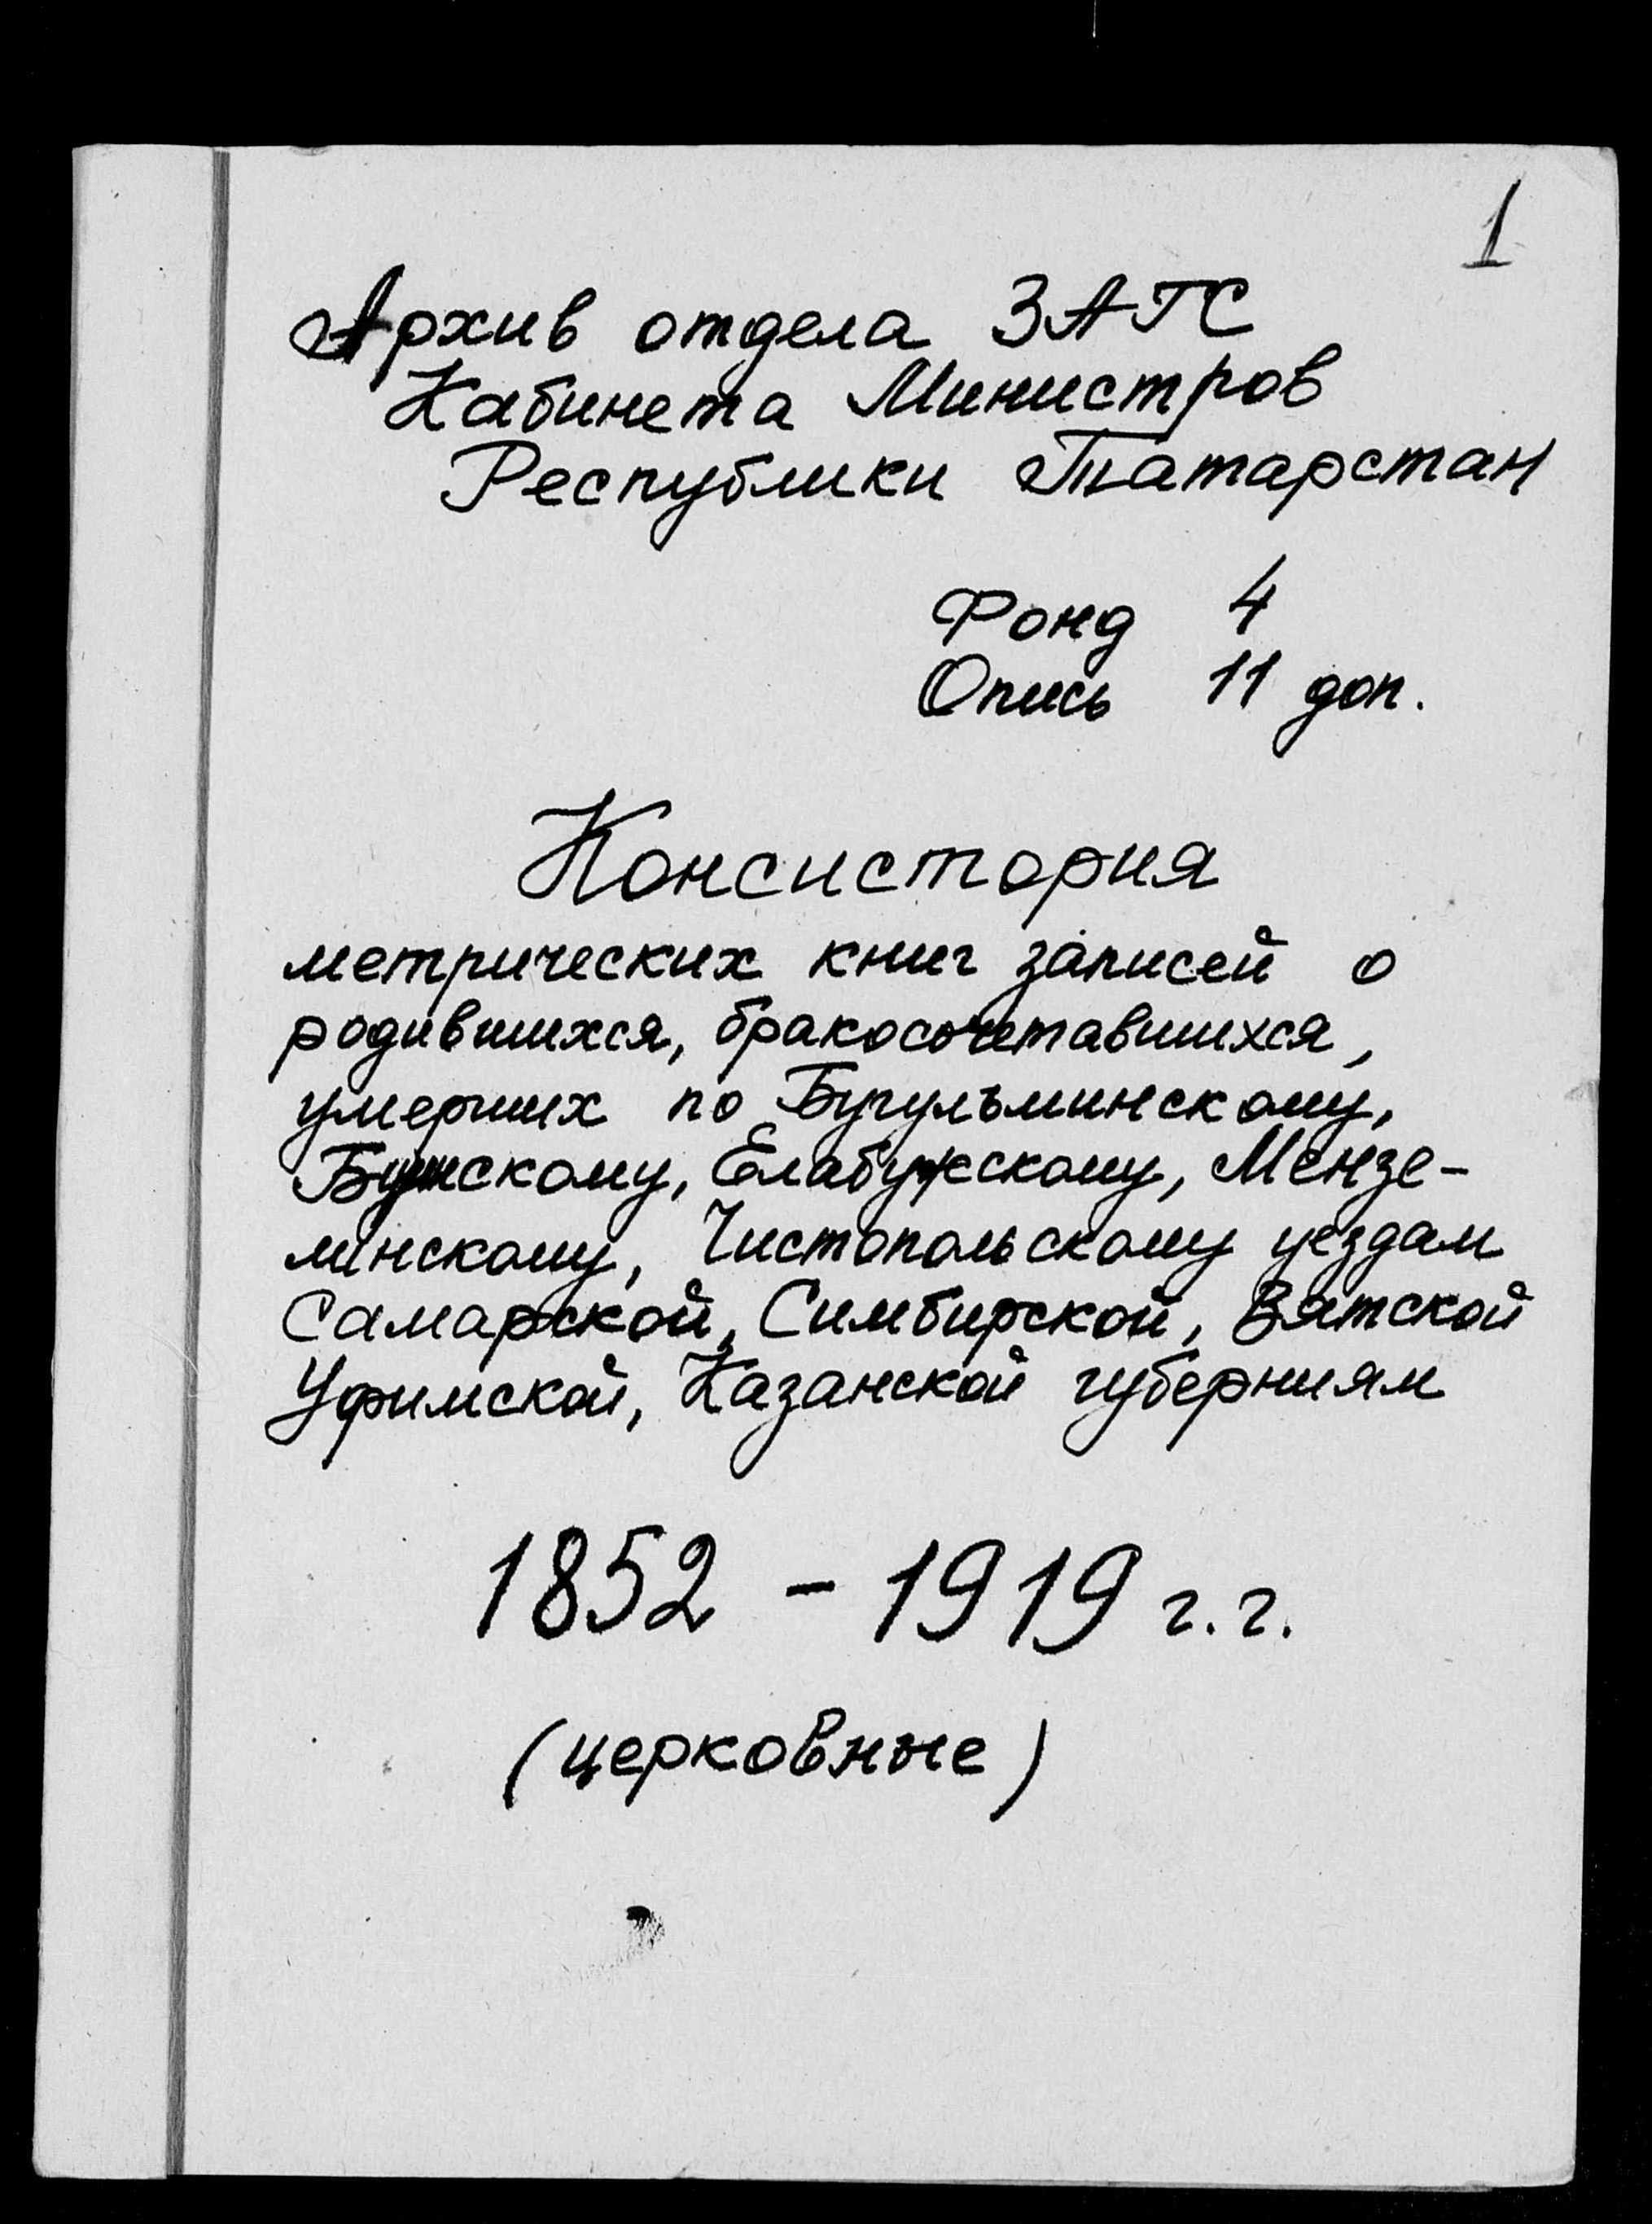 1
Архив отдела ЗАГС
Кабинета Министров
Республики Татарстан
Фонд 4
Опись 11 доп.
Консистория
метрических книг записей о
родившихся, бракосочетавшихся,
умерших по Бугульминскому,
Елабужскому, Мензе-
линскому, Чистопольскому уездам
Самарской, Симбирской, Вятской
Уфимской, Казанской губерниям
1852 - 1919 г.г.
(церковные)